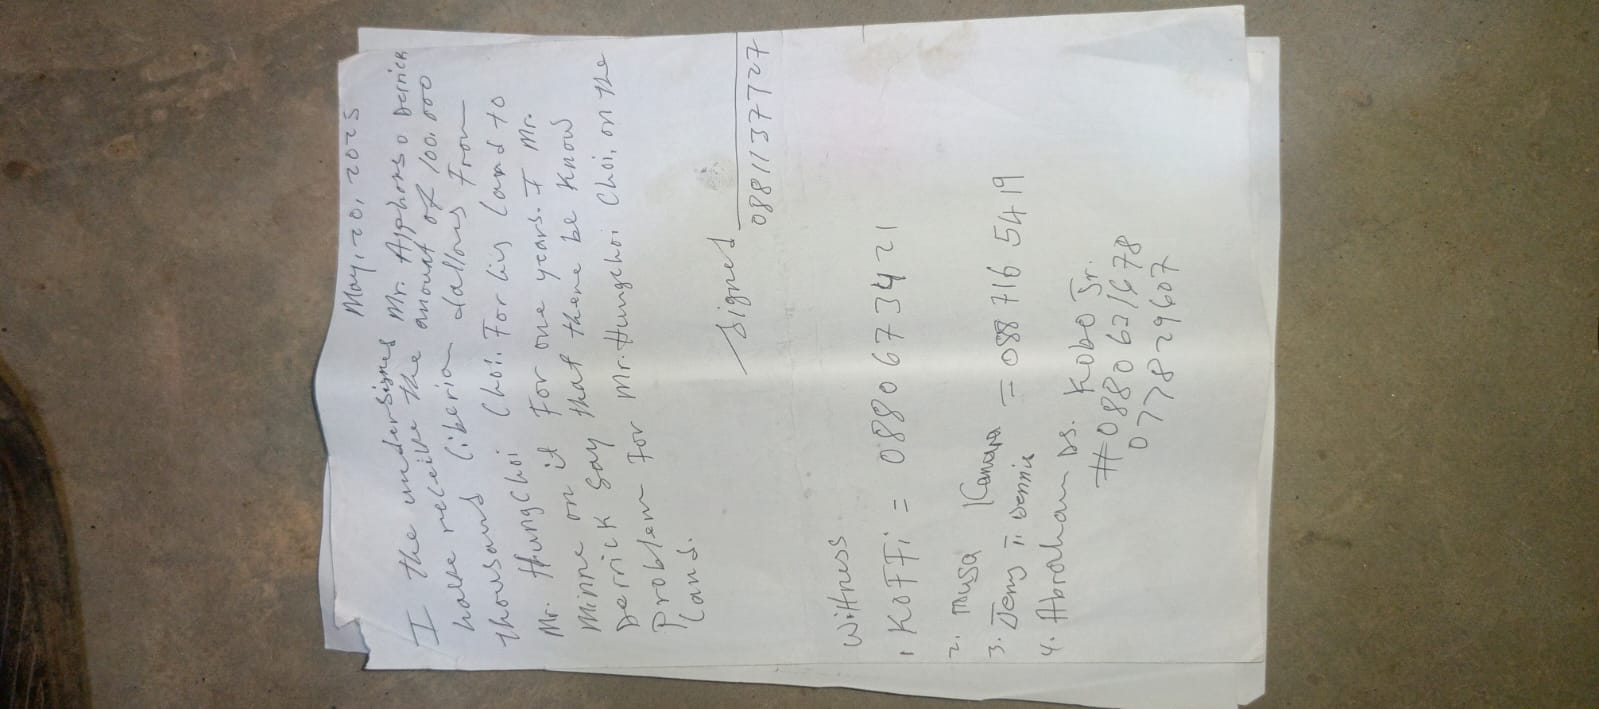 May, 20, 2025
I the undersignes Mr. Alphonso Derrick
have receive the amount of 100,000
thousand Liberian dallous From
Mr. Hungchoi Choi. For his Land to
Minne on it For one years. I Mr.
Derrick say that there be know
Problem For Mr. Hungchoi Choi, on the
Land.
Signed
0881137727
Witness
1 KOFFi = 0880673421
2. Musa Kamara
3. Jeny II Dennis = 0887165419
4. Abraham Ds. Kobo Jr.
#0880621678
077829607